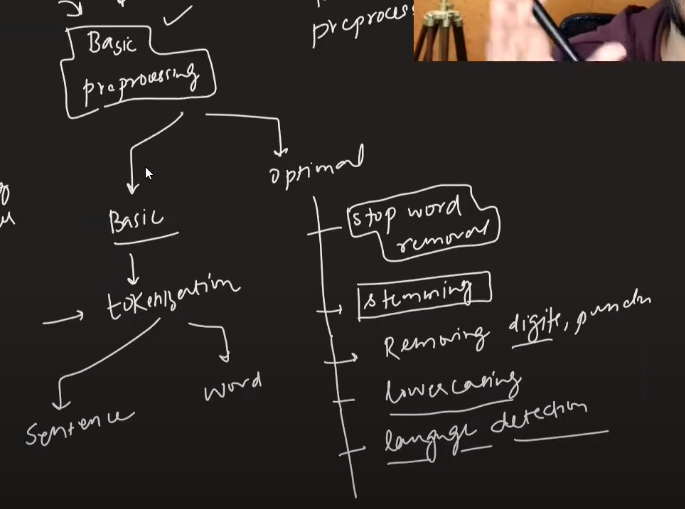 Basic
preprocessing
preprocess
Basic
optimal
tokenization
Sentence
word
stop word
removal
stemming
Removing digits,
lowercasing
language detection